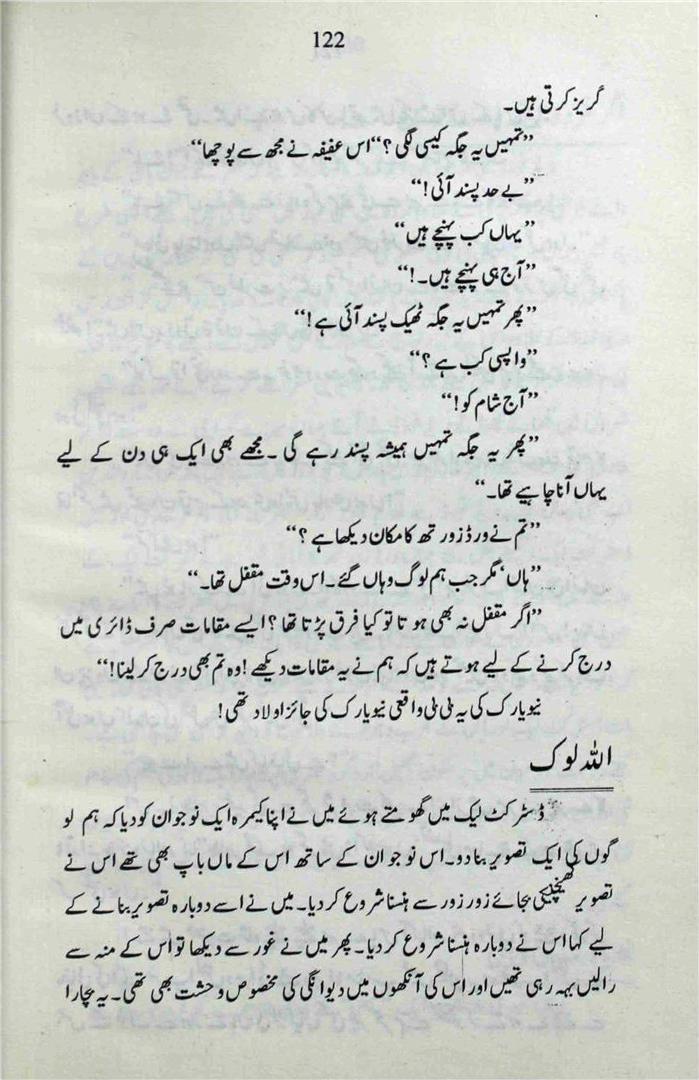 122
گریز کرتی ہیں۔
”تمہیں یہ جگہ کیسی لگی؟“ اس عفیفہ نے مجھ سے پوچھا“
”بے حد پسند آئی!“
”یہاں کب پہنچے ہیں“
”آج ہی پہنچے ہیں۔!“
”پھر تمہیں یہ جگہ ٹھیک پسند آئی ہے!“
”واپسی کب ہے؟“
”آج شام کو!“
”پھر یہ جگہ تمہیں ہمیشہ پسند رہے گی۔ مجھے بھی ایک ہی دن کے لیے
یہاں آنا چاہیے تھا۔“
”تم نے ورڈزورتھ کا مکان دیکھا ہے؟“
”ہاں‘ مگر جب ہم لوگ وہاں گئے۔ اس وقت مقفل تھا۔“
”اگر مقفل نہ بھی ہوتا تو کیا فرق پڑتا تھا؟ ایسے مقامات صرف ڈائری میں
درج کرنے کے لیے ہوتے ہیں کہ ہم نے یہ مقامات دیکھے! وہ تم بھی درج کر لینا!“
نیویارک کی یہ ٹی ٹی واقعی نیویارک کی جائز اولاد تھی!
اللہ لوک
ڈسٹرکٹ لیک میں گھومتے ہوئے میں نے اپنا کیمرہ ایک نوجوان کو دیا کہ ہم لو
گوں کی ایک تصویر بنا دو۔ اس نوجوان کے ساتھ اس کے ماں باپ بھی تھے اس نے
تصویر کھینچنے کی بجائے زور زور سے ہنسنا شروع کر دیا۔ میں نے اسے دوبارہ تصویر بنانے کے
لیے کہا اس نے دوبارہ ہنسنا شروع کر دیا۔ پھر میں نے غور سے دیکھا تو اس کے منہ سے
رالیں بہہ رہی تھیں اور اس کی آنکھوں میں دیوانگی کی مخصوص وحشت بھی تھی۔ یہ بچارا